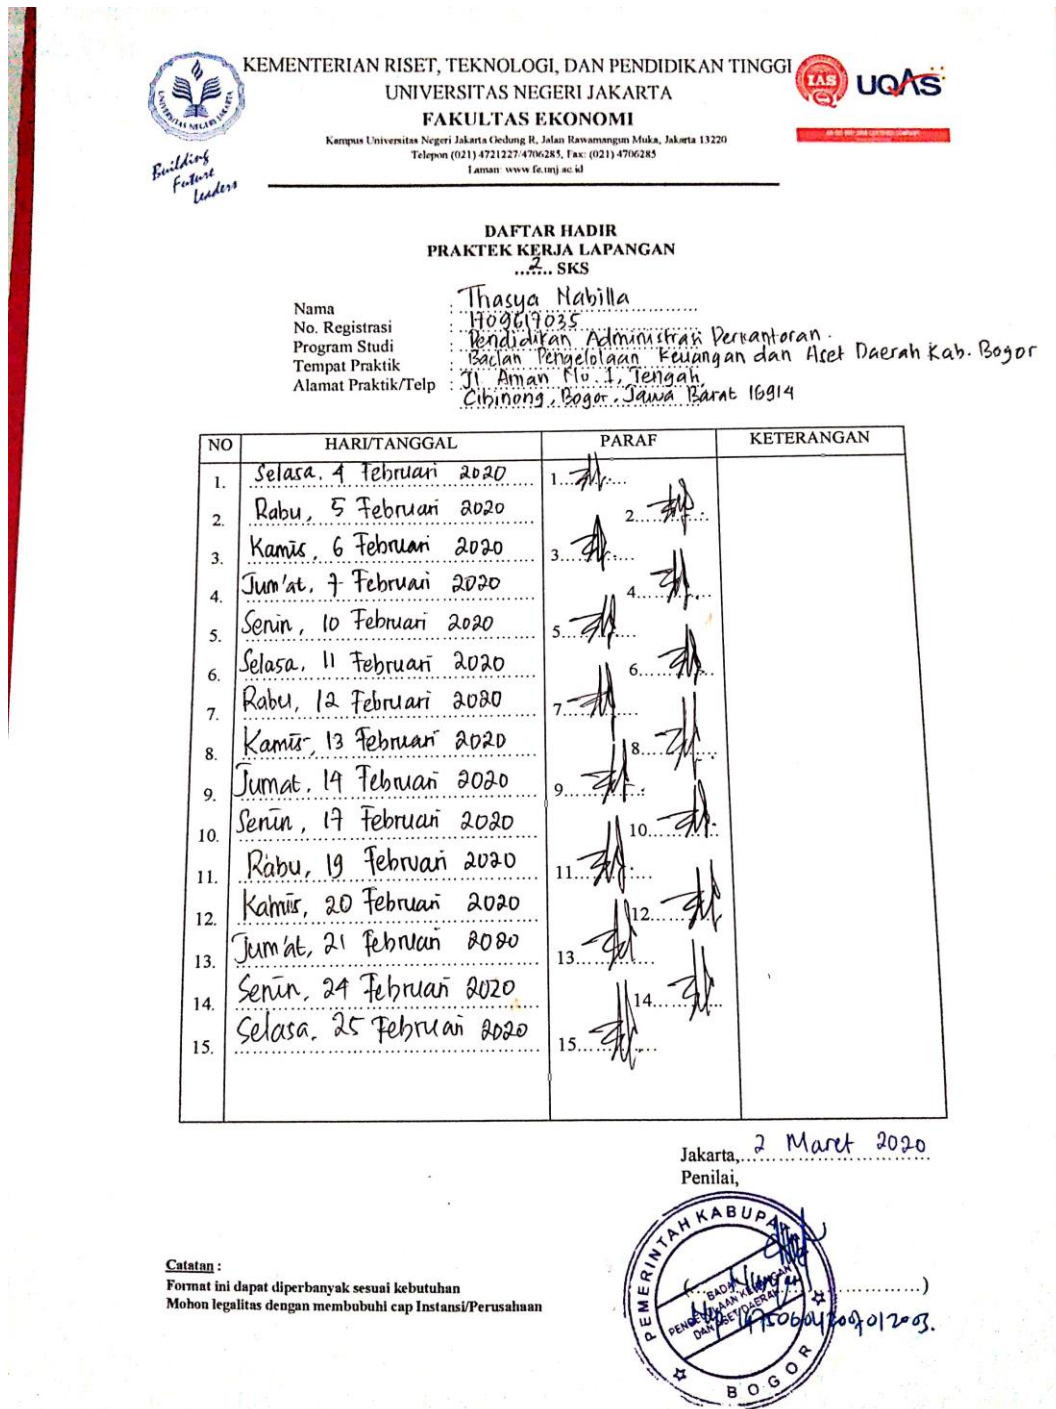 KEMENTERIAN RISET, TEKNOLOGI, DAN PENDIDIKAN TINGGI
UNIVERSITAS NEGERI JAKARTA
FAKULTAS EKONOMI
Kampus Universitas Negeri Jakarta Gedung R, Jalan Rawamangun Muka, Jakarta 13220
Telepon (021) 4721227/4706285, Fax: (021) 4706285
Laman: www.fe.unj.ac.id
UNIVERSITAS NEGERI JAKARTA
Building
Future
Leaders
IAS
UQAS
DAFTAR HADIR
PRAKTEK KERJA LAPANGAN
...2... SKS
Nama : Thasya Nabilla
No. Registrasi : 1709617035
Program Studi : Pendidikan Administrasi Perkantoran.
Tempat Praktik : Badan Pengelolaan Keuangan dan Aset Daerah Kab. Bogor
Alamat Praktik/Telp : Jl Aman No. 1, Tengah,
Cibinong, Bogor, Jawa Barat 16914
NO HARI/TANGGAL PARAF KETERANGAN
1. Selasa, 4 Februari 2020 1.
2. Rabu, 5 Februari 2020 2.
3. Kamis, 6 Februari 2020 3.
4. Jum'at, 7 Februari 2020 4.
5. Senin, 10 Februari 2020 5.
6. Selasa, 11 Februari 2020 6.
7. Rabu, 12 Februari 2020 7.
8. Kamis, 13 Februari 2020 8.
9. Jumat, 14 Februari 2020 9.
10. Senin, 17 Februari 2020 10.
11. Rabu, 19 Februari 2020 11.
12. Kamis, 20 Februari 2020 12.
13. Jum'at, 21 Februari 2020 13.
14. Senin, 24 Februari 2020 14.
15. Selasa, 25 Februari 2020 15.
Jakarta, 2 Maret 2020
Penilai,
PEMERINTAH KABUPATEN
BADAN
PENGELOLAAN KEUANGAN
DAN ASET DAERAH
BOGOR
Catatan :
Format ini dapat diperbanyak sesuai kebutuhan
Mohon legalitas dengan membubuhi cap Instansi/Perusahaan